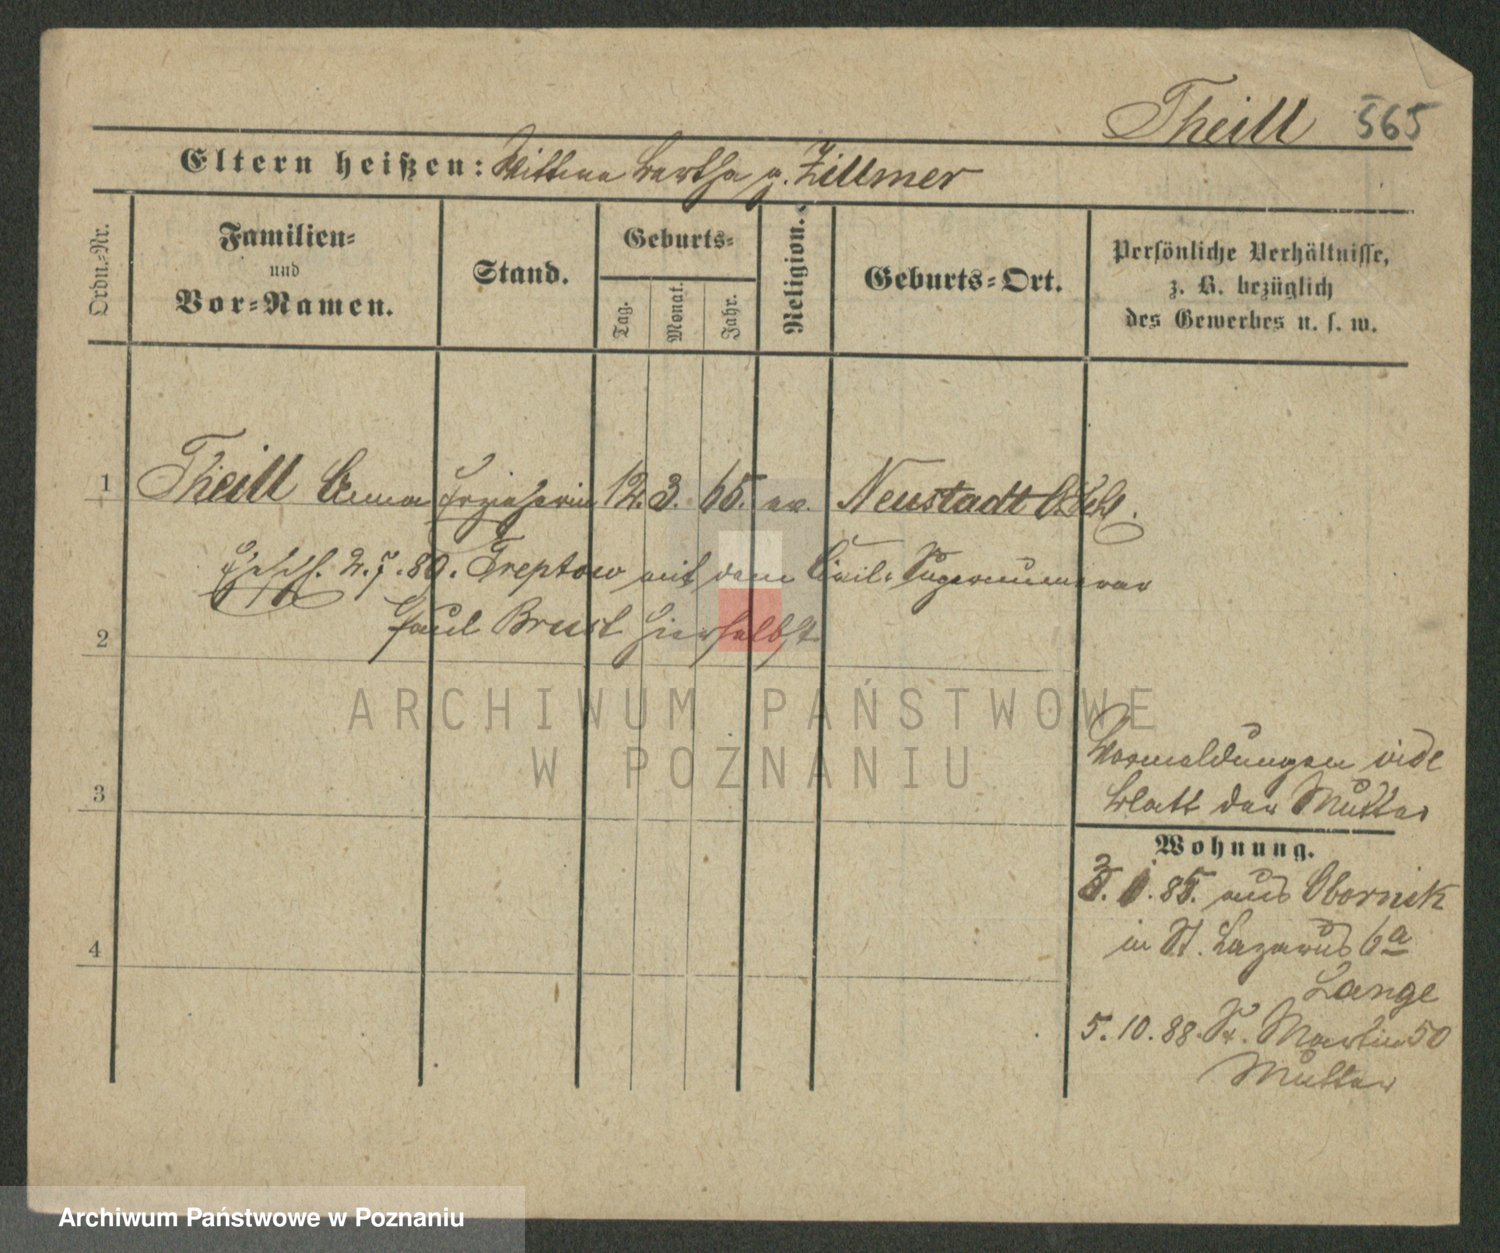 Theill 565
Eltern heißen: Wittwe Bertha g. Zillmer
Ordn.-Nr.
Familien-
und
Vor-Namen.
Stand.
Geburts-
Tag.
Monat.
Jahr.
Religion.
Geburts-Ort.
Persönliche Verhältnisse,
z. B. bezüglich
des Gewerbes u. s. w.
1 Theill Anna Erzieherin 12. 3. 65. ev. Neustadt
2. 7. 89. Treptow mit dem Civil-Supernumerar
2 Paul Brust hierselbst
3
4
Vormeldungen vide
Blatt der Mutter
Wohnung.
85. aus Obornik
in St. Lazarus 6a
Lange
5. 10. 88. St. Martin 50
Mutter
ARCHIWUM PAŃSTWOWE
W POZNANIU
Archiwum Państwowe w Poznaniu